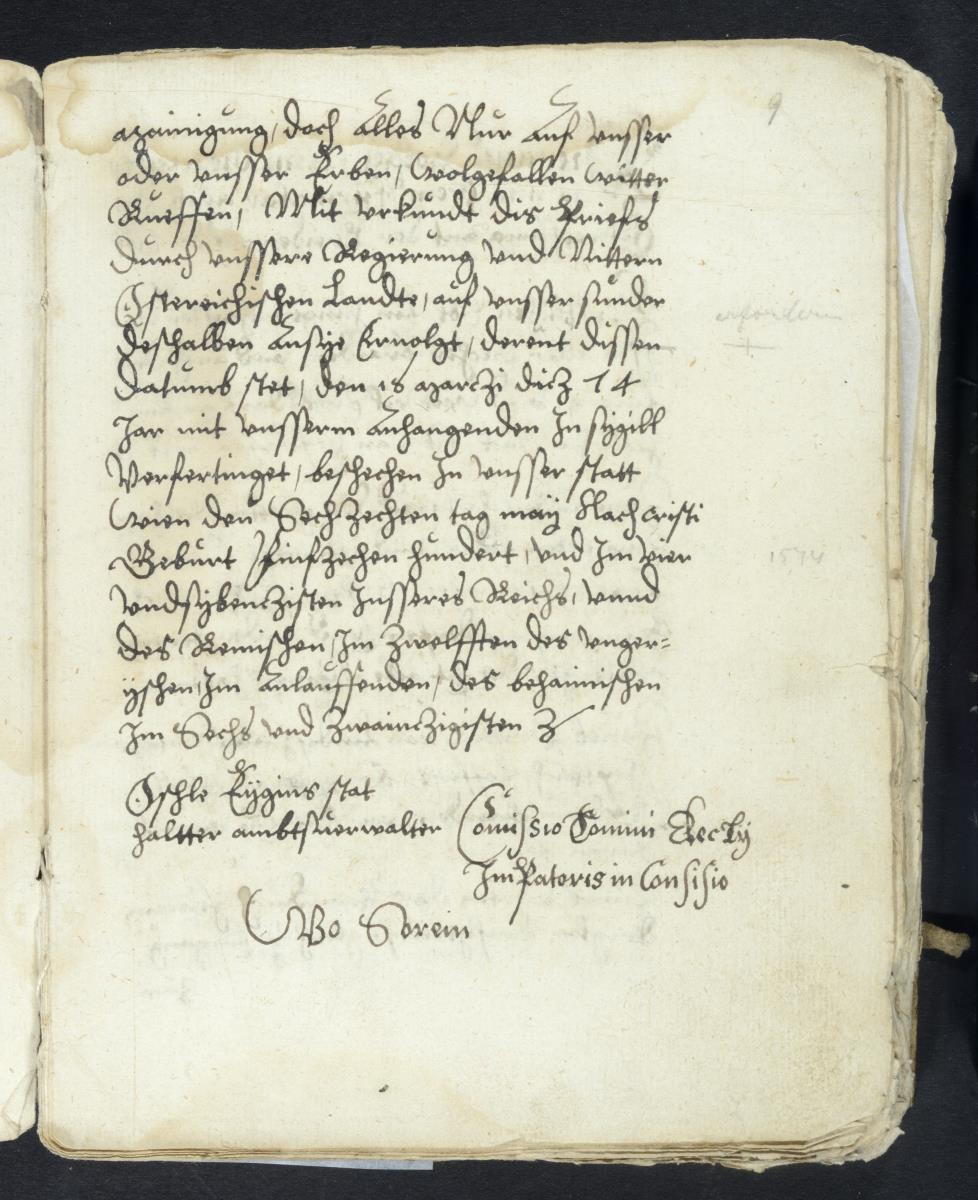 9
mainigung, doch Alles Nur Auf unsser
oder unsser Erben, wolgefallen witter
Rueffen, Mit urkundt dis Briefs
Durch unssere Regierung und Nittern
Östereichischen Landte, auf unsser sunder
deshalben Ervolgt, derent dissen
datumb stet, den 18 marczi dicz 74
Jar mit unsserm Anhangenden In sygill
Verfertinget, beschechen In unsser statt
Wien den Sechzechten tag may Nach cristi
Geburt Finfzechen hundert, und Im vier
undsybenczisten Insseres Reichs, unnd
des Remischen, Im Zwelfften des unger=
yschen, Im Anlauffenden, des behaimischen
Im Sechs und Zwainczigisten
Öschle Eygins stat
haltter ambtsverwalter
Comissio Domini Elec Ty
Im Patoris in Consisio
1574
Wo Sorein